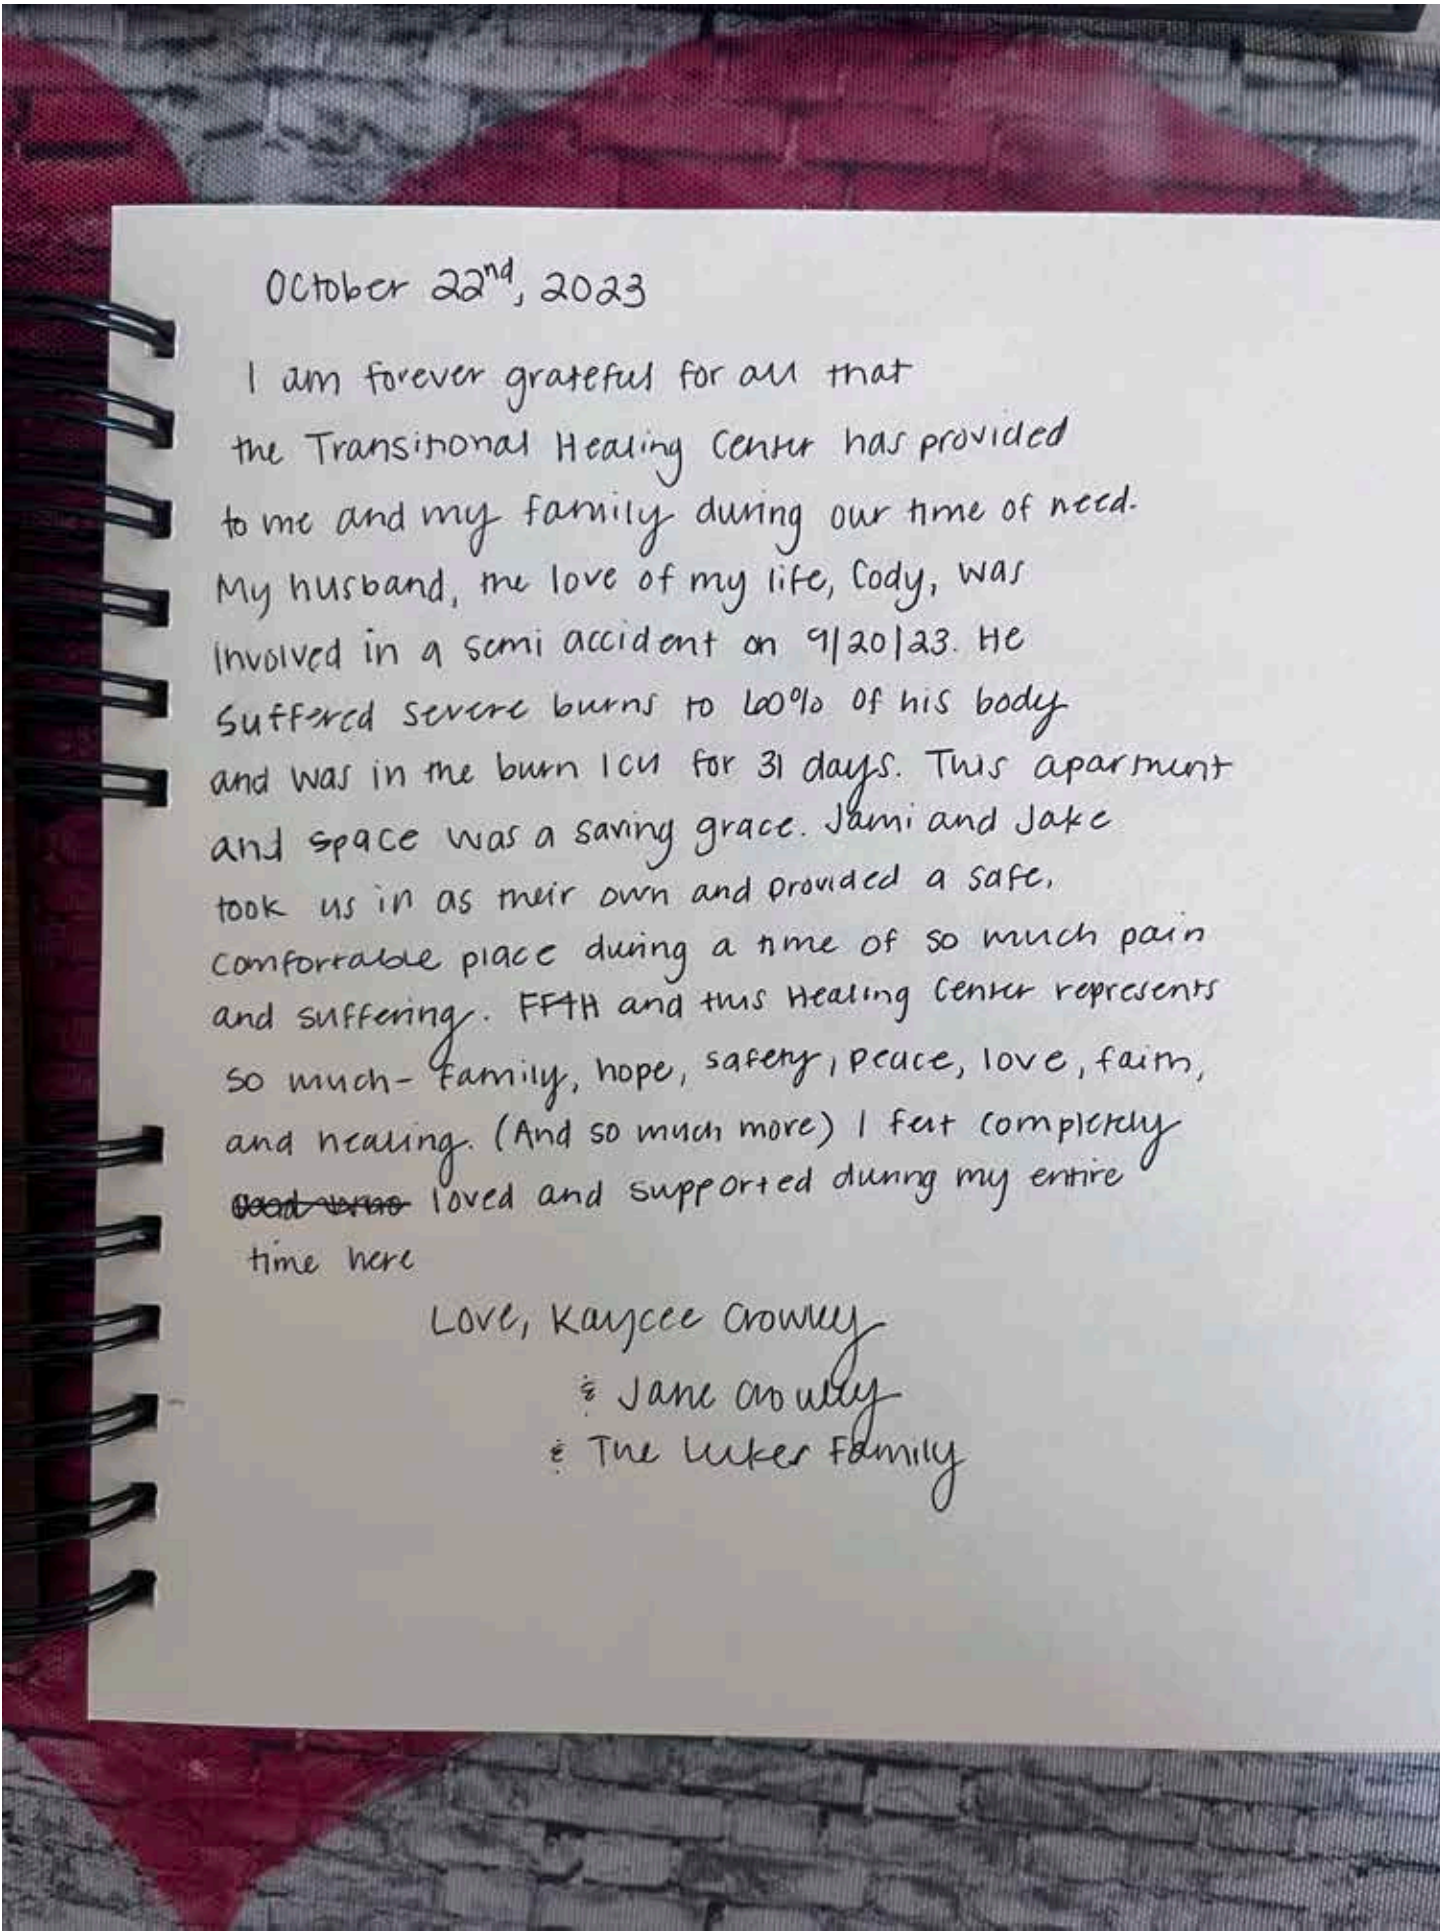 October 22nd, 2023
I am forever grateful for all that
the Transitional Healing Center has provided
to me and my family during our time of need.
My husband, the love of my life, Cody, was
involved in a semi accident on 9/20/23. He
suffered severe burns to 60% of his body
and was in the burn ICU for 31 days. This apartment
and space was a saving grace. Jami and Jake
took us in as their own and provided a safe,
comfortable place during a time of so much pain
and suffering. FFTH and this Healing Center represents
so much- family, hope, safety, peace, love, faith,
and healing. (And so much more) I felt completely
loved and supported during my entire
time here
Love, Kaycee Crowley
& Jane Crowley
& The Luker Family